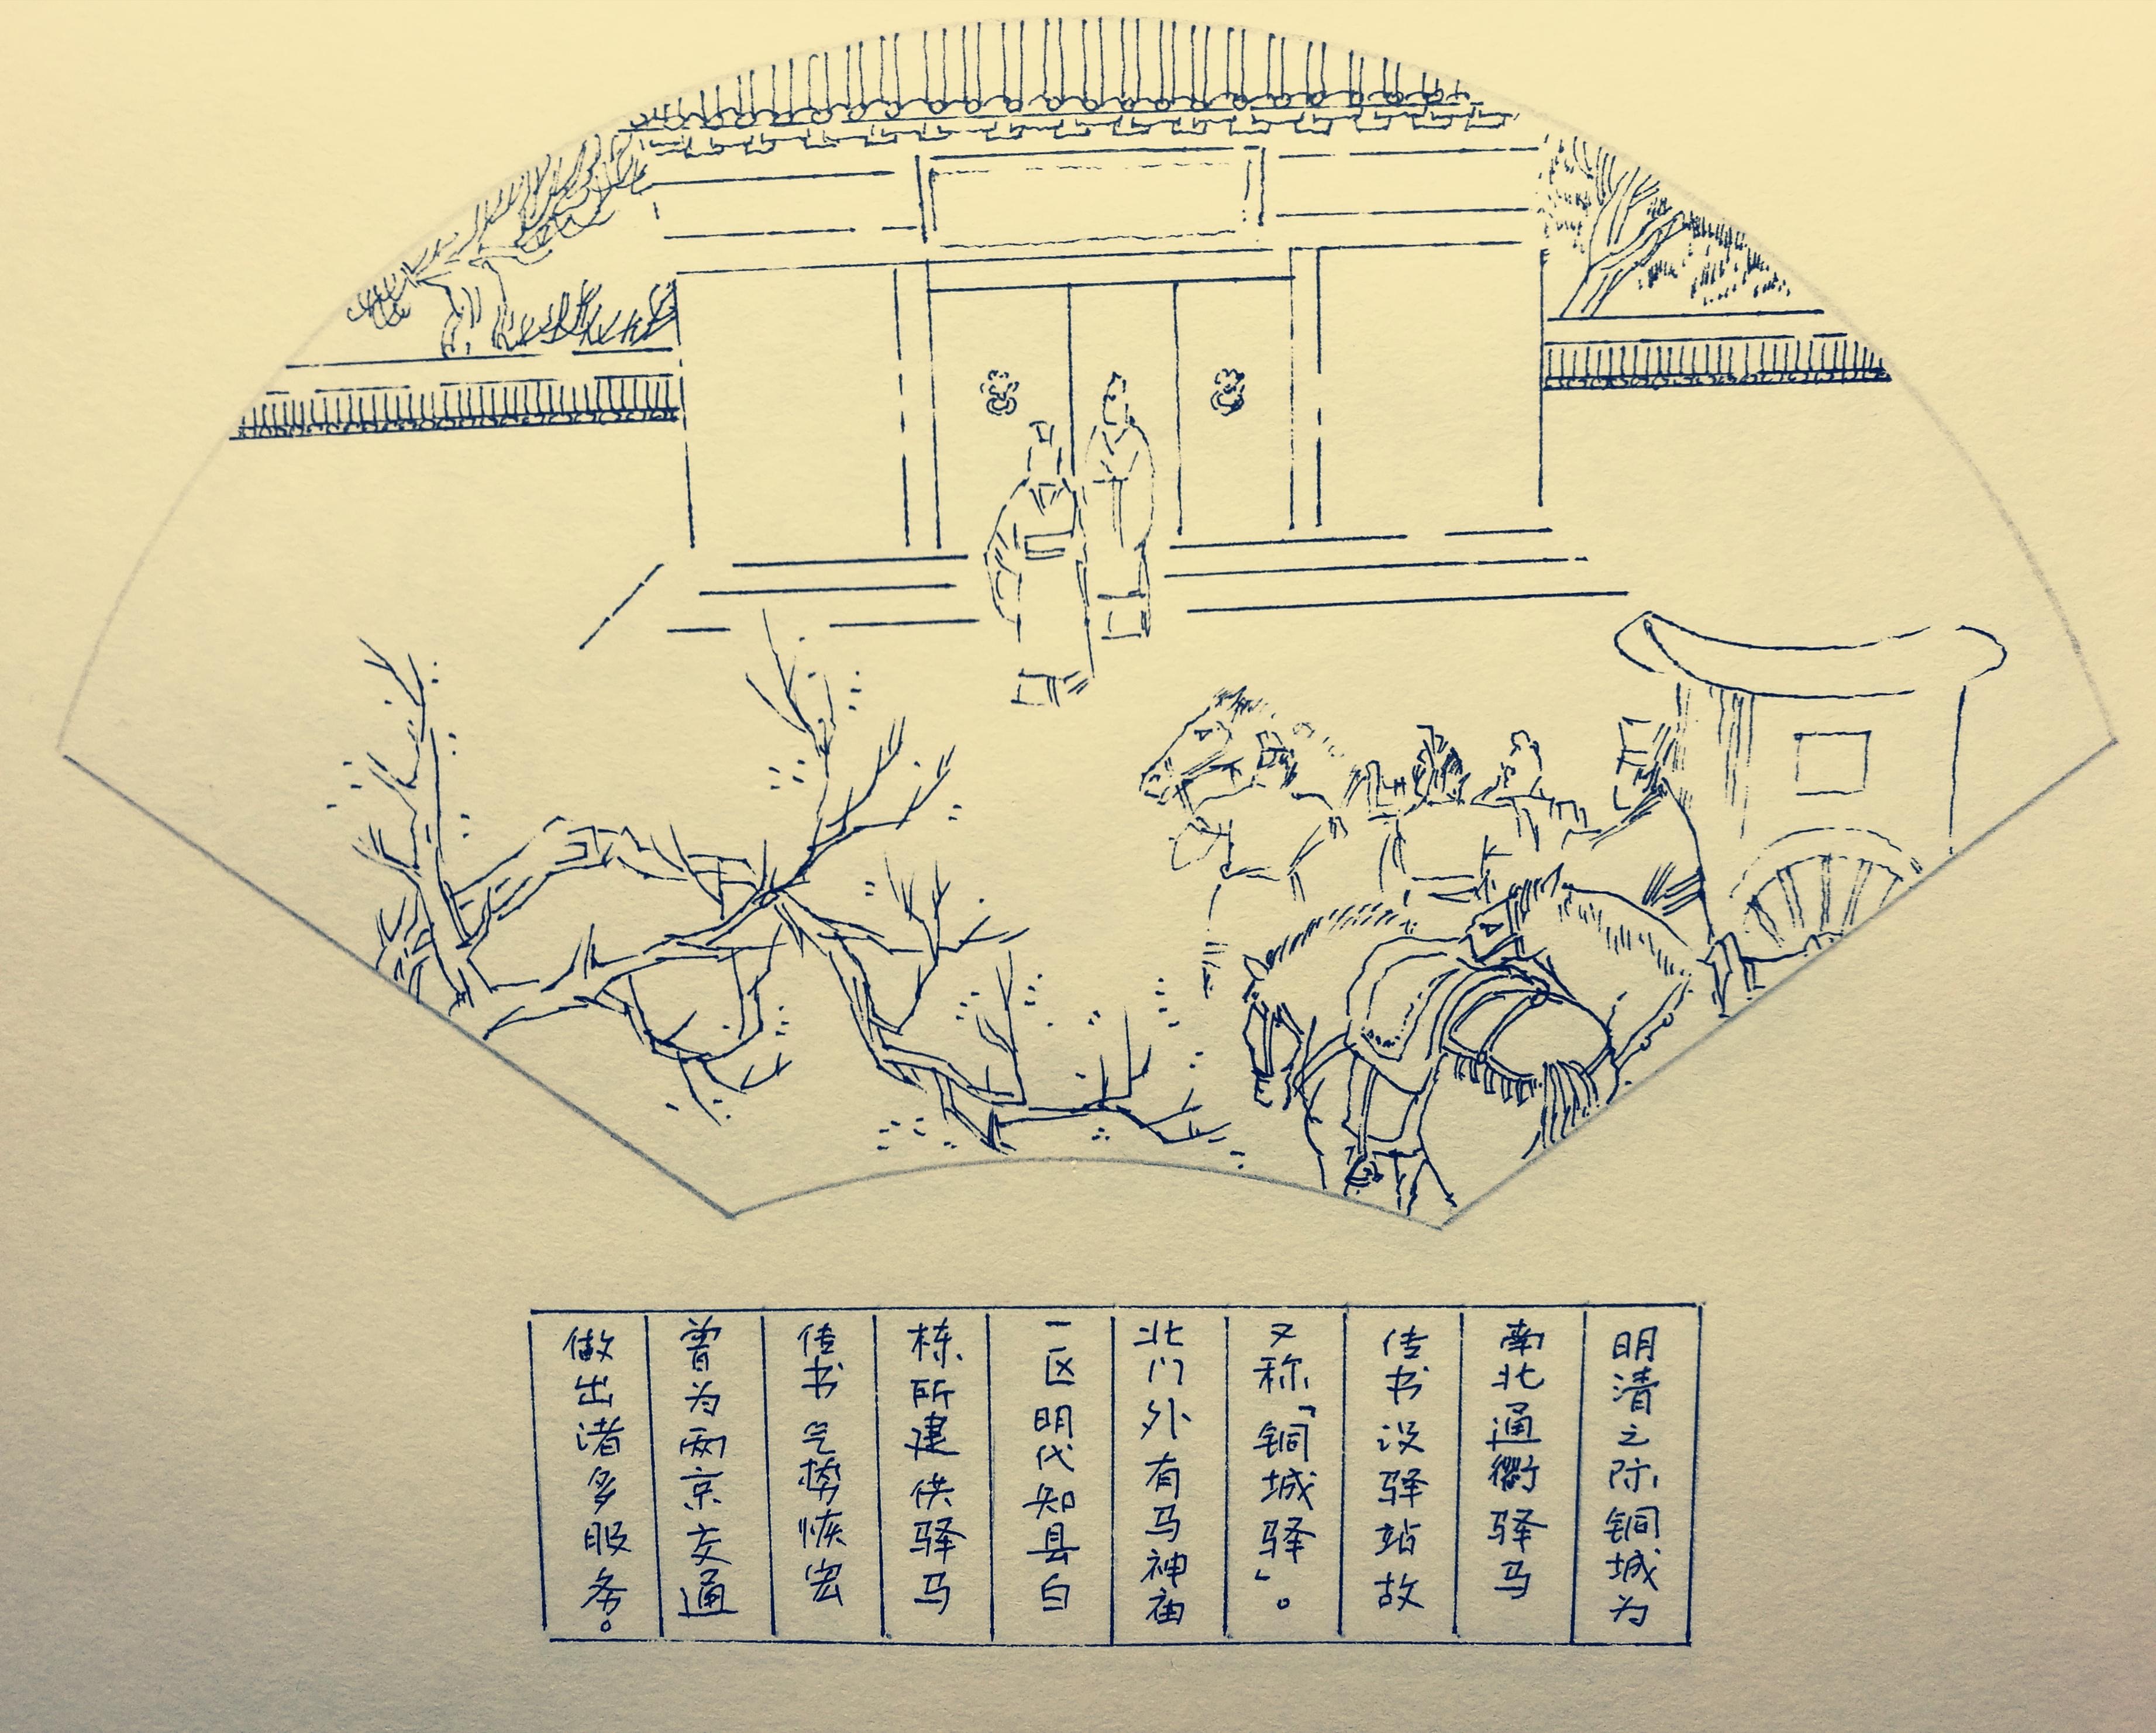 明清之际铜城为
南北通衢驿马
传书设驿站故
又称「铜城驿」。
北门外有马神庙
一区明代知县白
栋所建供驿马
传书气势恢宏
曾为两京交通
做出渚多服务。